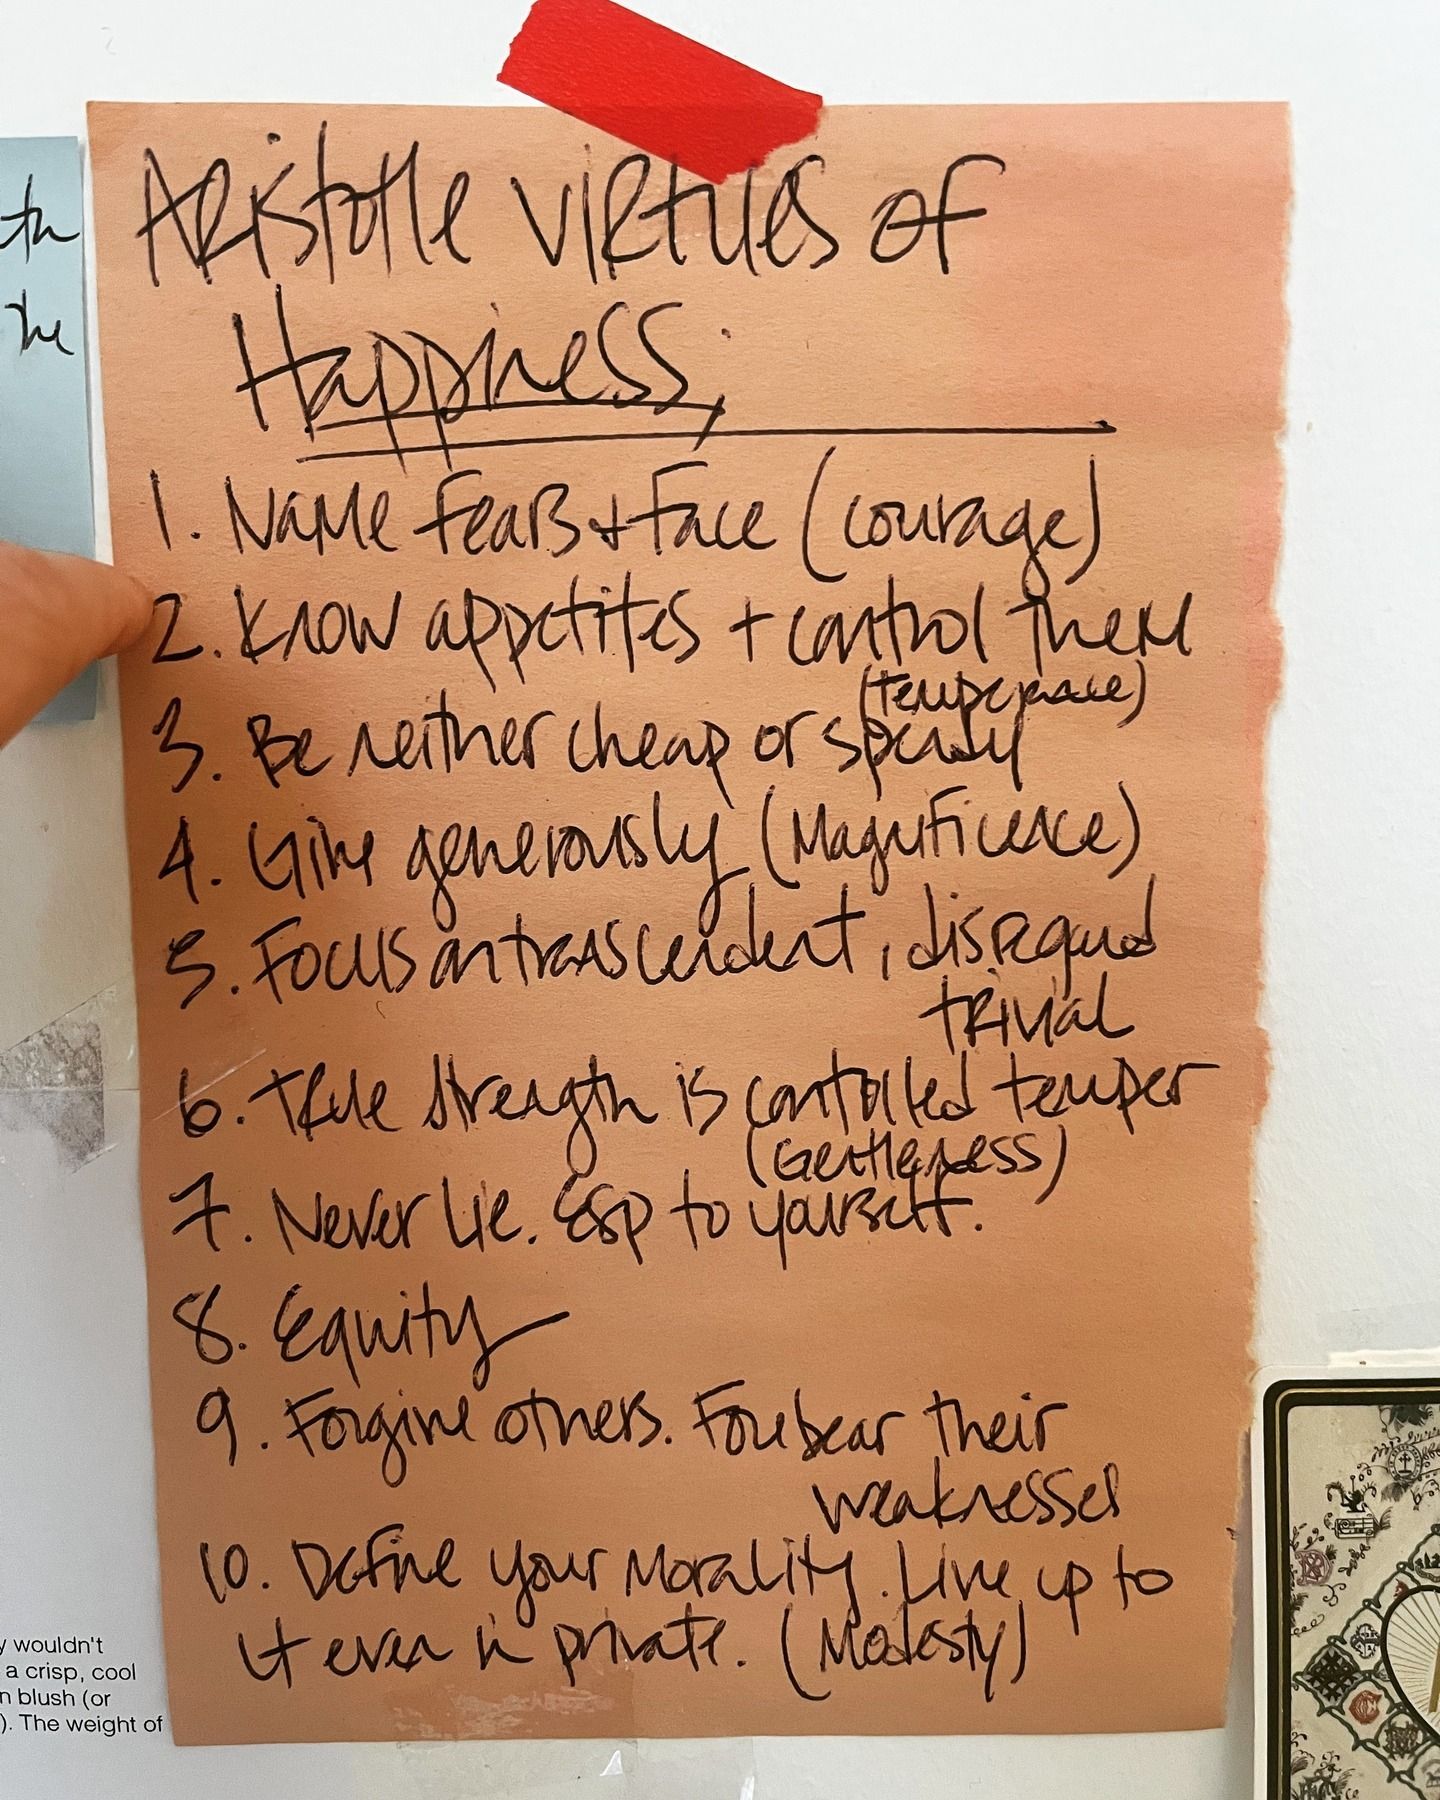 th
the
Aristotle virtues of
Happiness;
1. Name Fears + Face (courage)
2. Know appetites + control them
(temperance)
3. Be neither cheap or spendy
4. Give generously (Magnificence)
5. Focus on transcendent, disregard
trivial
6. True strength is controlled temper
(Gentleness)
7. Never Lie. Esp to yourself.
8. Equity
9. Forgive others. Forebear their
weaknesses
10. Define your Morality. Live up to
it even in private. (Modesty)
y wouldn't
a crisp, cool
n blush (or
). The weight of